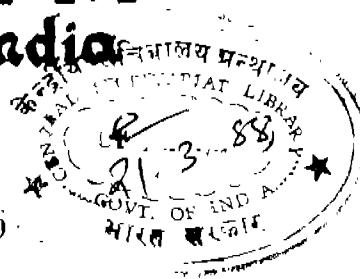 ndia
केन्द्रीय सचिवालय ग्रन्थालय
CENTRAL SECRETARIAT LIBRARY
21.3.88
GOVT. OF INDIA
भारत सरकार